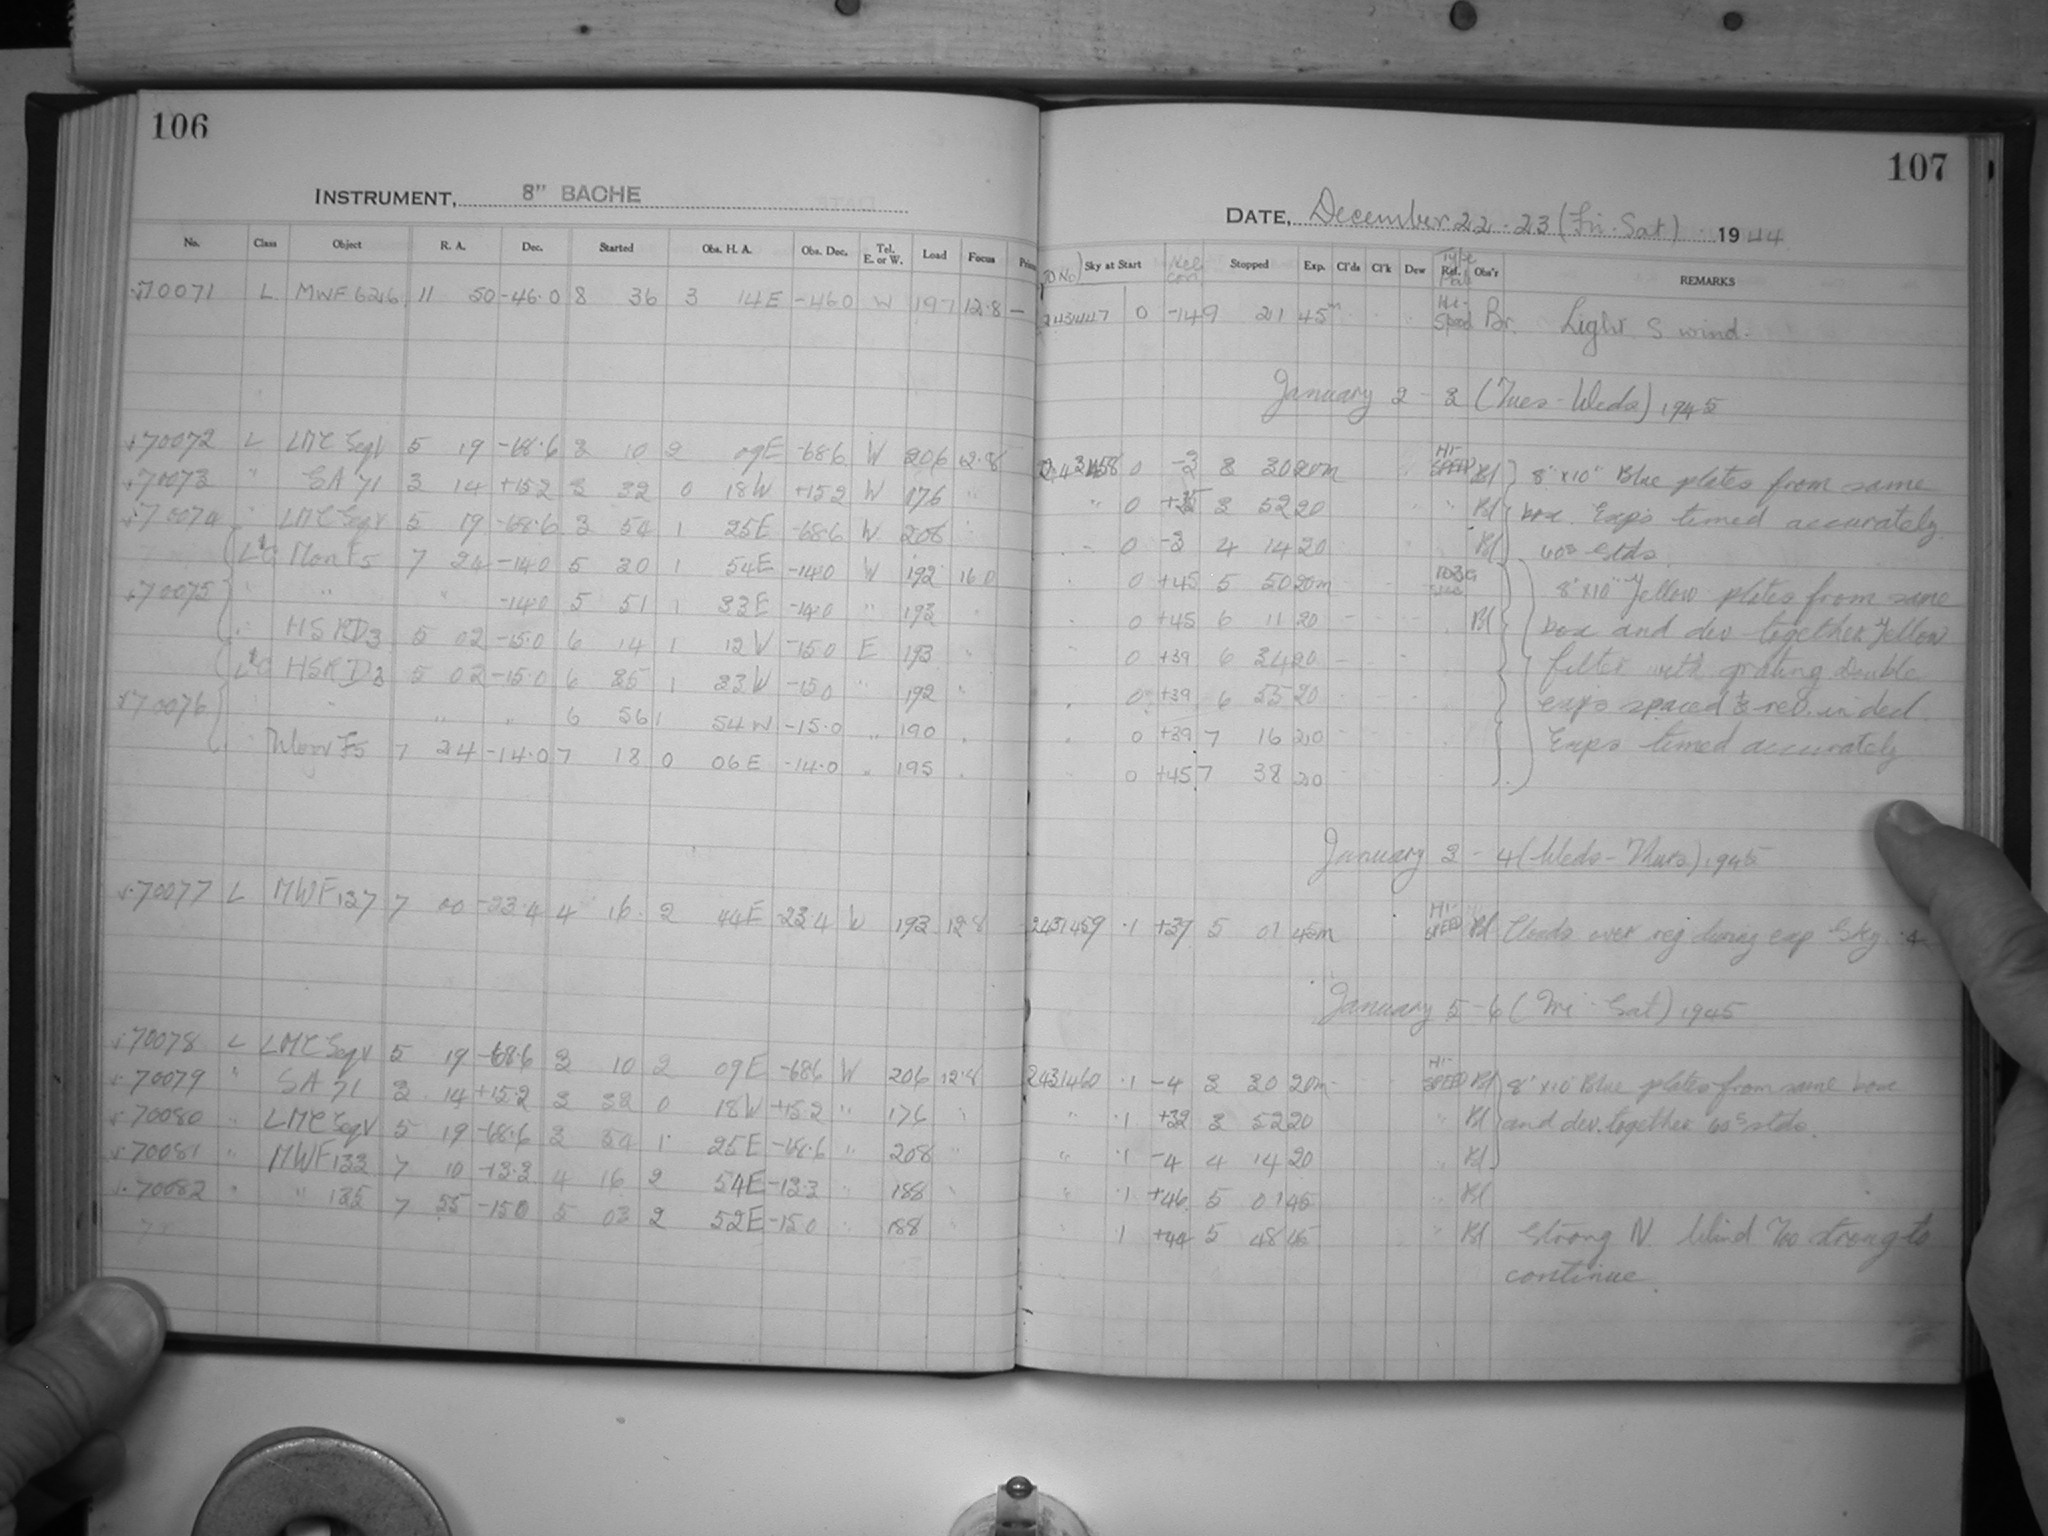 106
INSTRUMENT, 8" BACHE
No. Class Object R. A. Dec. Started Obs. H. A. Obs. Dec. Tel. E. or W. Load Focus
70071 L MWF 626 11 50 -46.0 8 36 3 14E -46.0 W 197 12.8 —
70072 L LMC Seq V 5 19 -68.6 3 10 2 09E -68.6 W 206 12.8
70073 " SA 71 3 14 +15.2 3 32 0 18W +15.2 W 176 "
70074 " LMC Seq V 5 19 -68.6 3 54 1 25E -68.6 W 208
Mon F5 7 24 -14.0 5 30 1 54E -14.0 W 192 16.0
70075 " " " -14.0 5 51 1 33E -14.0 " 193
HSRD3 5 02 -15.0 6 14 1 12W -15.0 E 193 "
HSRD3 5 02 -15.0 6 35 1 33W -15.0 " 192 "
70076 " " " 6 56 1 54W -15.0 " 190
Mon F5 7 24 -14.0 7 18 0 06E -14.0 " 195
70077 L MWF 137 7 00 -23.4 4 16 2 44E -23.4 W 193 12.8
70078 L LMC Seq V 5 19 -68.6 3 10 2 09E -68.6 W 206 12.8
70079 " SA 71 3 14 +15.2 3 32 0 18W +15.2 " 176 "
70080 " LMC Seq V 5 19 -68.6 3 54 1 25E -68.6 " 208 "
70081 " MWF 133 7 10 -13.3 4 16 2 54E -13.3 " 188 "
70082 " " 135 7 55 -15.0 5 03 2 52E -15.0 " 188 "
107
DATE, December 22-23 (Fri-Sat) 1944
JD No Sky at Start Stopped Exp. Cl'ds Cl'k Dew Ref. Obs'r REMARKS
2431447 0 -14 9 21 45m Hi-Speed Br. Light S wind.
January 2-3 (Tues-Weds) 1945
2431458 0 -3 3 30 20m Hi-SPEED Bl 8"x10" Blue plates from same
" 0 +35 3 52 20 " Bl box. Exps timed accurately.
0 -3 4 14 20 Bl 60s Stds
0 +45 5 50 20m 103G 8"x10" Yellow plates from same
0 +45 6 11 20 Bl box and dev together Yellow
0 +39 6 34 20 filter with grating Double
0 +39 6 55 20 exps spaced ½ rev. in decl.
0 +39 7 16 20 Exps timed accurately
0 +45 7 38 20
January 3-4 (Weds-Thurs) 1945
2431459 .1 +37 5 01 45m Hi-SPEED Bl Clouds over reg during exp Sky .4
January 5-6 (Fri-Sat) 1945
2431460 .1 -4 3 30 20m Hi-SPEED Bl 8"x10" Blue plates from same box
" .1 +32 3 52 20 " Bl and dev. together 60s stds.
" .1 -4 4 14 20 " Bl
" .1 +46 5 01 45 " Bl
" 1 +44 5 48 45 " Bl Strong N. Wind Too strong to
continue